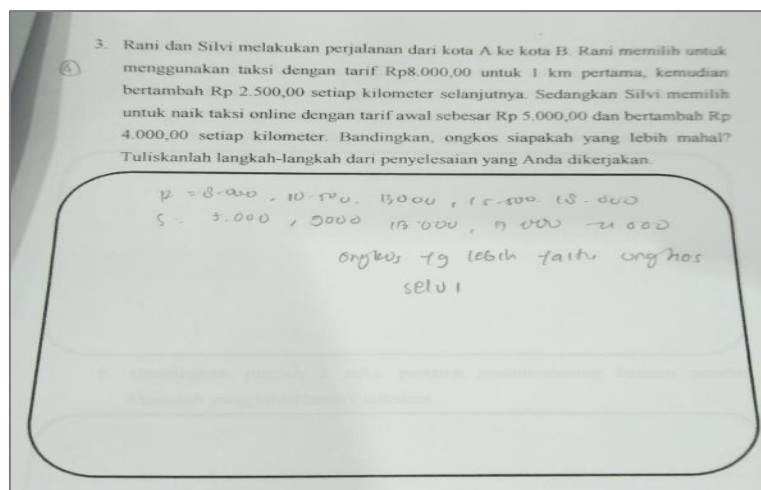 3. Rani dan Silvi melakukan perjalanan dari kota A ke kota B. Rani memilih untuk
4 menggunakan taksi dengan tarif Rp8.000,00 untuk 1 km pertama, kemudian
bertambah Rp 2.500,00 setiap kilometer selanjutnya. Sedangkan Silvi memilih
untuk naik taksi online dengan tarif awal sebesar Rp 5.000,00 dan bertambah Rp
4.000,00 setiap kilometer. Bandingkan, ongkos siapakah yang lebih mahal?
Tuliskanlah langkah-langkah dari penyelesaian yang Anda dikerjakan.
R = 8.000, 10.500. 13000, 15.500. 18.000
S. 5.000, 9000 13.000, 21000
ongkos yg lebih yaitu ongkos
selvi